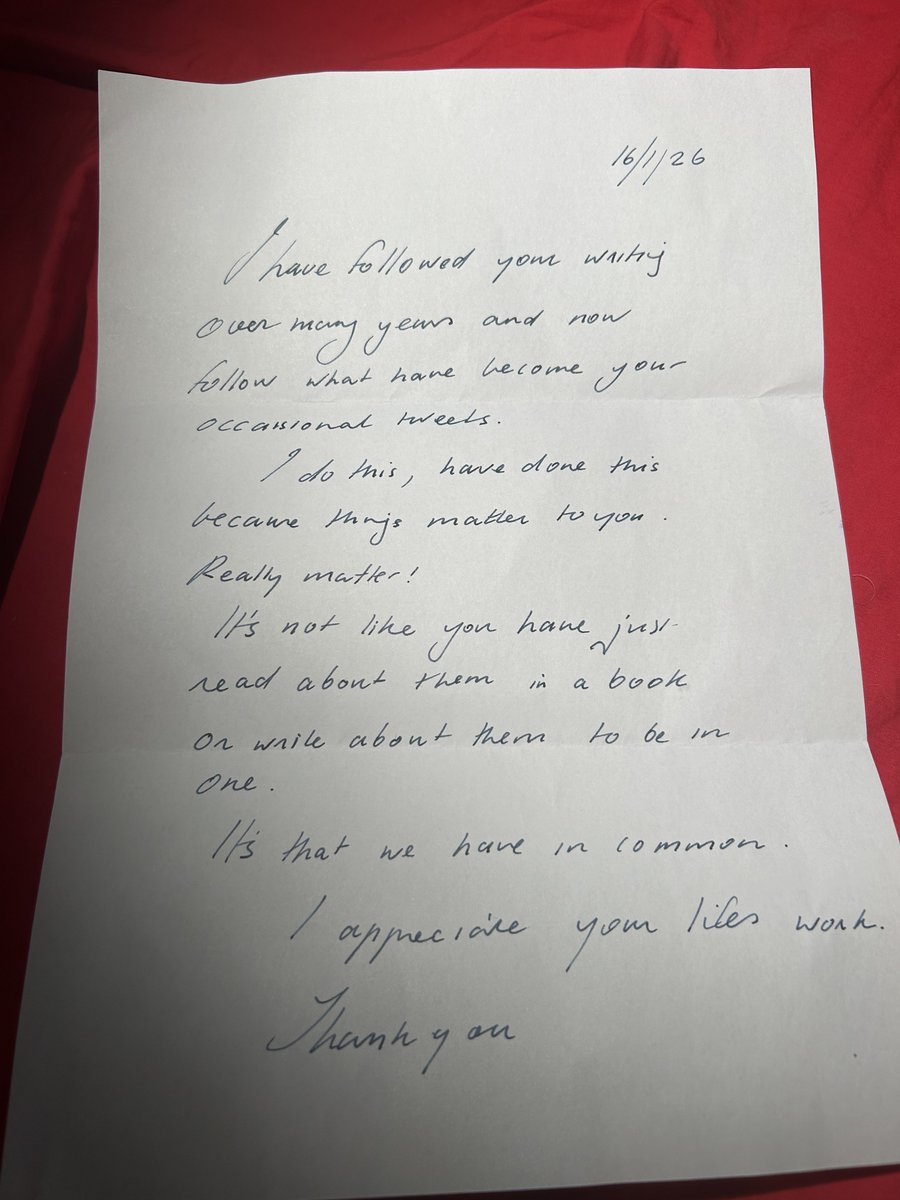 16/1/26
I have followed your writing
over many years and now
follow what have become your
occassional tweets.
I do this, have done this
because things matter to you.
Really matter!
It's not like you have just
read about them in a book
or write about them to be in
one.
It's that we have in common.
I appreciate your lifes work.
Thank you